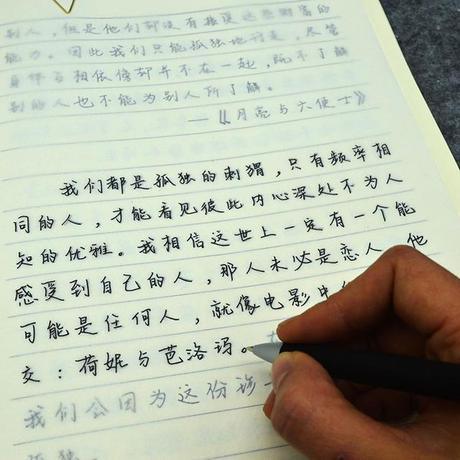 别人，但是他们却没有接受这些财富的
能力。因此我们只能孤独地行走，尽管
身体互相依傍却并不在一起，既不了解
别的人也不能为别人所了解。
——《月亮与六便士》
我们都是孤独的刺猬，只有频率相
同的人，才能看见彼此内心深处不为人
知的优雅。我相信这世上一定有一个能
感受到自己的人，那人未必是恋人，他
可能是任何人，就像电影中
交：荷妮与芭洛玛。
我们会因为这份珍
孤独。